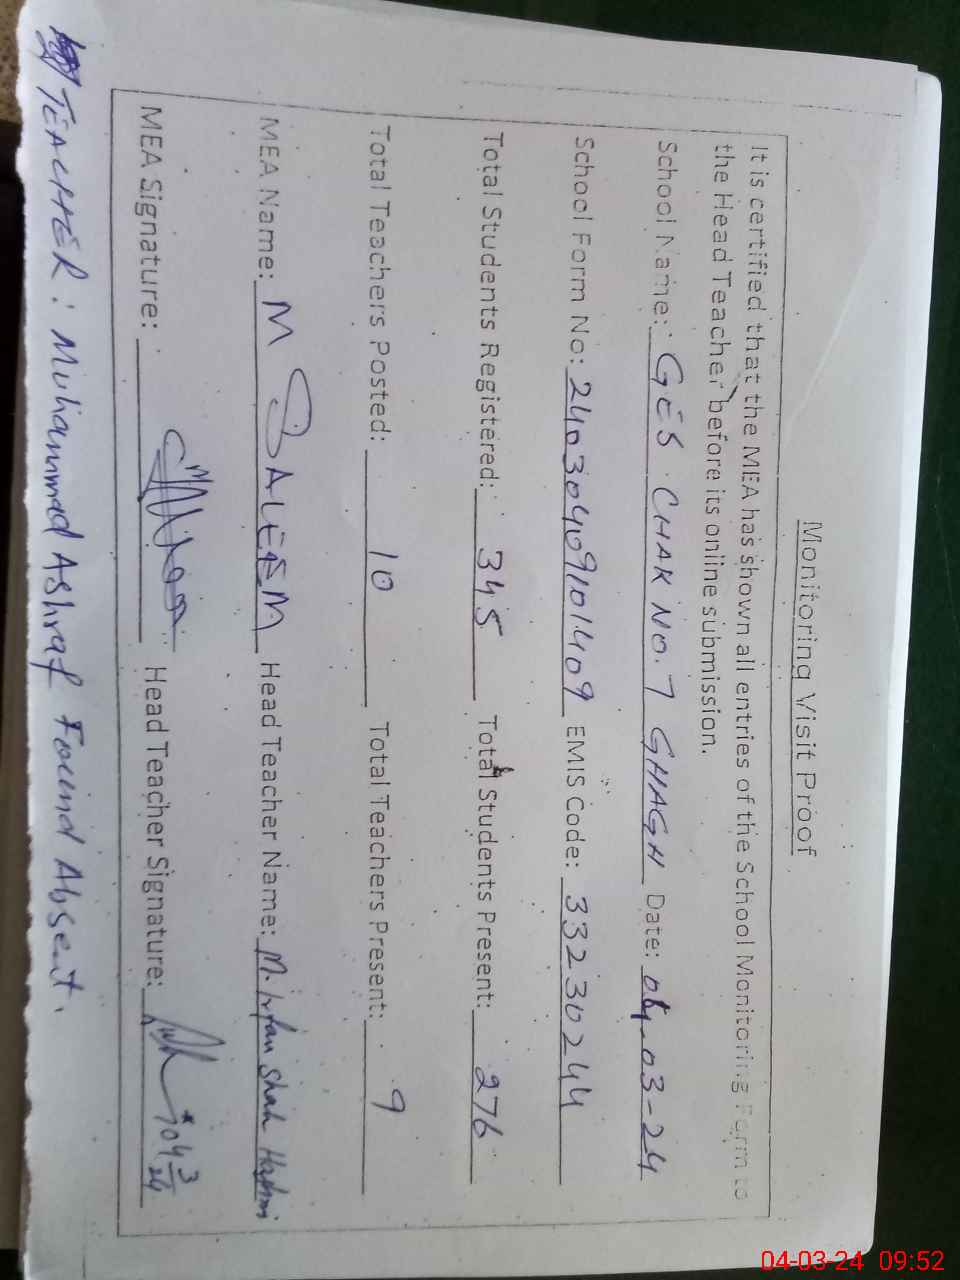 Monitoring Visit Proof
It is certified that the MEA has shown all entries of the School Monitoring Form to
the Head Teacher before its online submission.
School Name: GES CHAK NO.7 GHAGH Date: 04-03-24
School Form No: 24030409101409 EMIS Code: 33230244
Total Students Registered: 345 Total Students Present: 276
Total Teachers Posted: 10 Total Teachers Present: 9
MEA Name: M SALEEM Head Teacher Name: M. Irfan Shah Hashmi
MEA Signature: Head Teacher Signature: 04/3/24
TEACHER: Muhammad Ashraf Found Absent.
04-03-24 09:52